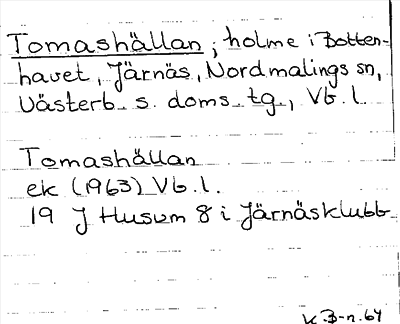 Tomashällan, holme i Botten-
havet, Järnäs, Nordmalings sn,
Västerb. s. doms. tg., Vb. l.
Tomashällan
ek (1963) Vb. l.
19 J Husum 8 i Järnäsklubb
K.B-n. 64